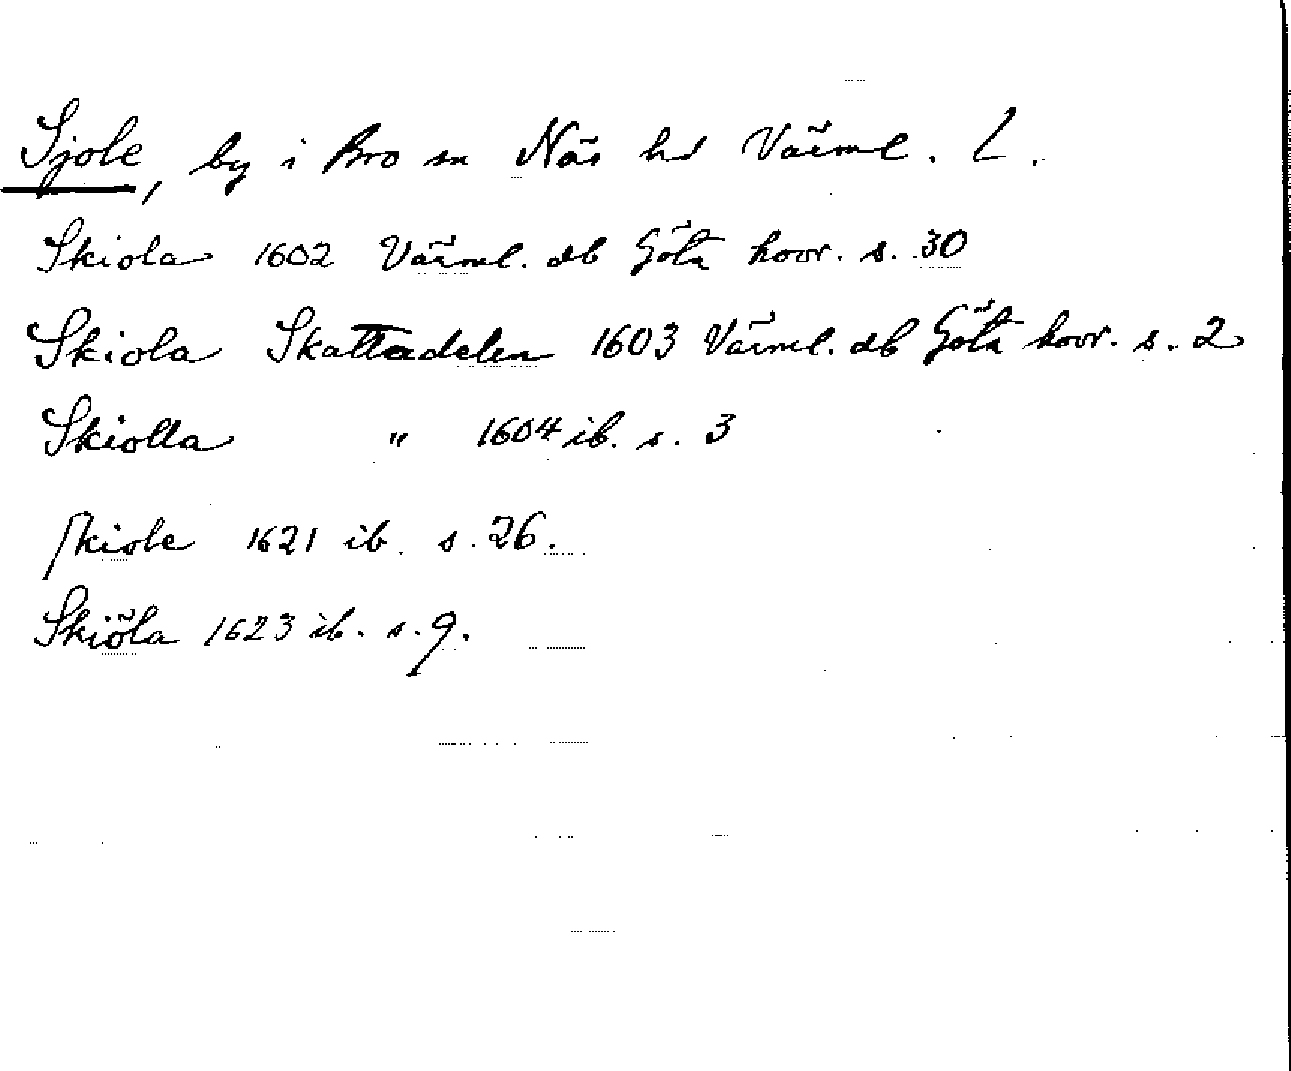 Sjole, by i Bro sn Näs hd Värml. L.
Skiola 1602 Värml. db Göta hovr. s. 30
Skiola Skattadelen 1603 Värml. db Göta hovr. s. 2
Skiolla " 1604 ib. s. 3
Skiole 1621 ib. s. 26.
Skiöla 1623 ib. s. 9.